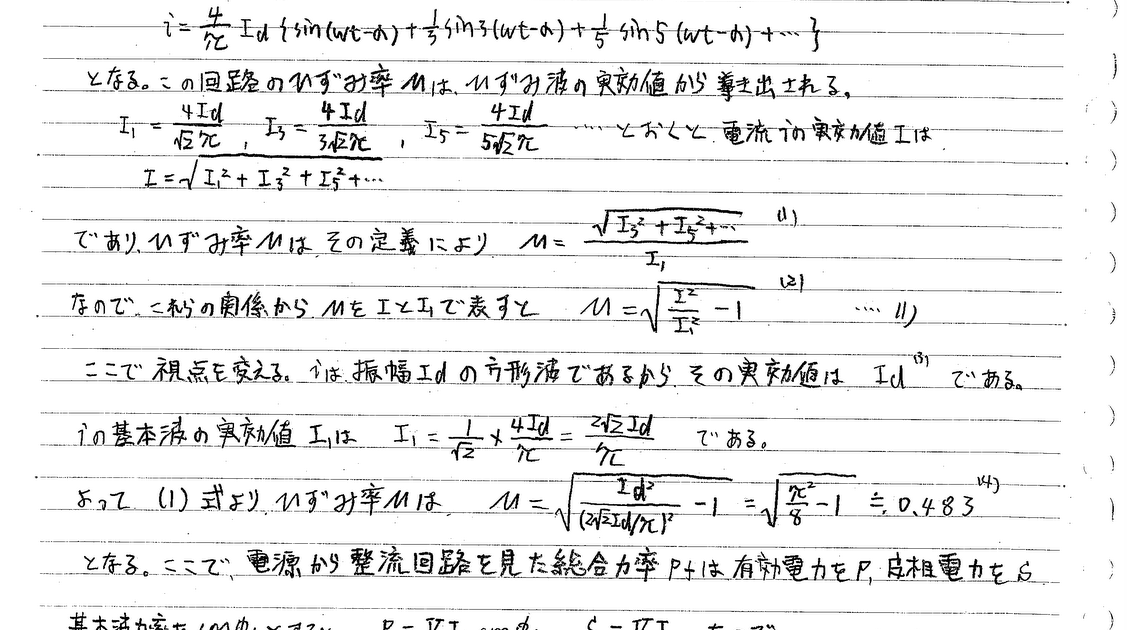 i = 4/π Id {sin(ωt-α) + 1/3 sin3(ωt-α) + 1/5 sin5(ωt-α) + … }
となる。この回路のひずみ率μは、ひずみ波の実効値から導き出される。
I₁ = 4Id/√2π , I₃ = 4Id/3√2π , I₅ = 4Id/5√2π …… とおくと 電流iの実効値Iは
I = √(I₁² + I₃² + I₅² + …)
であり、ひずみ率μは その定義により μ = √(I₃² + I₅² + …)/I₁ (1)
なので、これらの関係から μをIとI₁で表すと μ = √(I²/I₁² - 1) (2) …… 1)
ここで 視点を変える。iは 振幅Idの方形波であるから その実効値は Id (3) である。
iの基本波の実効値 I₁は I₁ = 1/√2 × 4Id/π = 2√2Id/π である。
よって (1)式より ひずみ率μは μ = √(Id²/(2√2Id/π)² - 1) = √(π²/8 - 1) ≒ 0.483 (4)
となる。ここで、電源から整流回路を見た総合力率Pfは 有効電力をP, 皮相電力をS